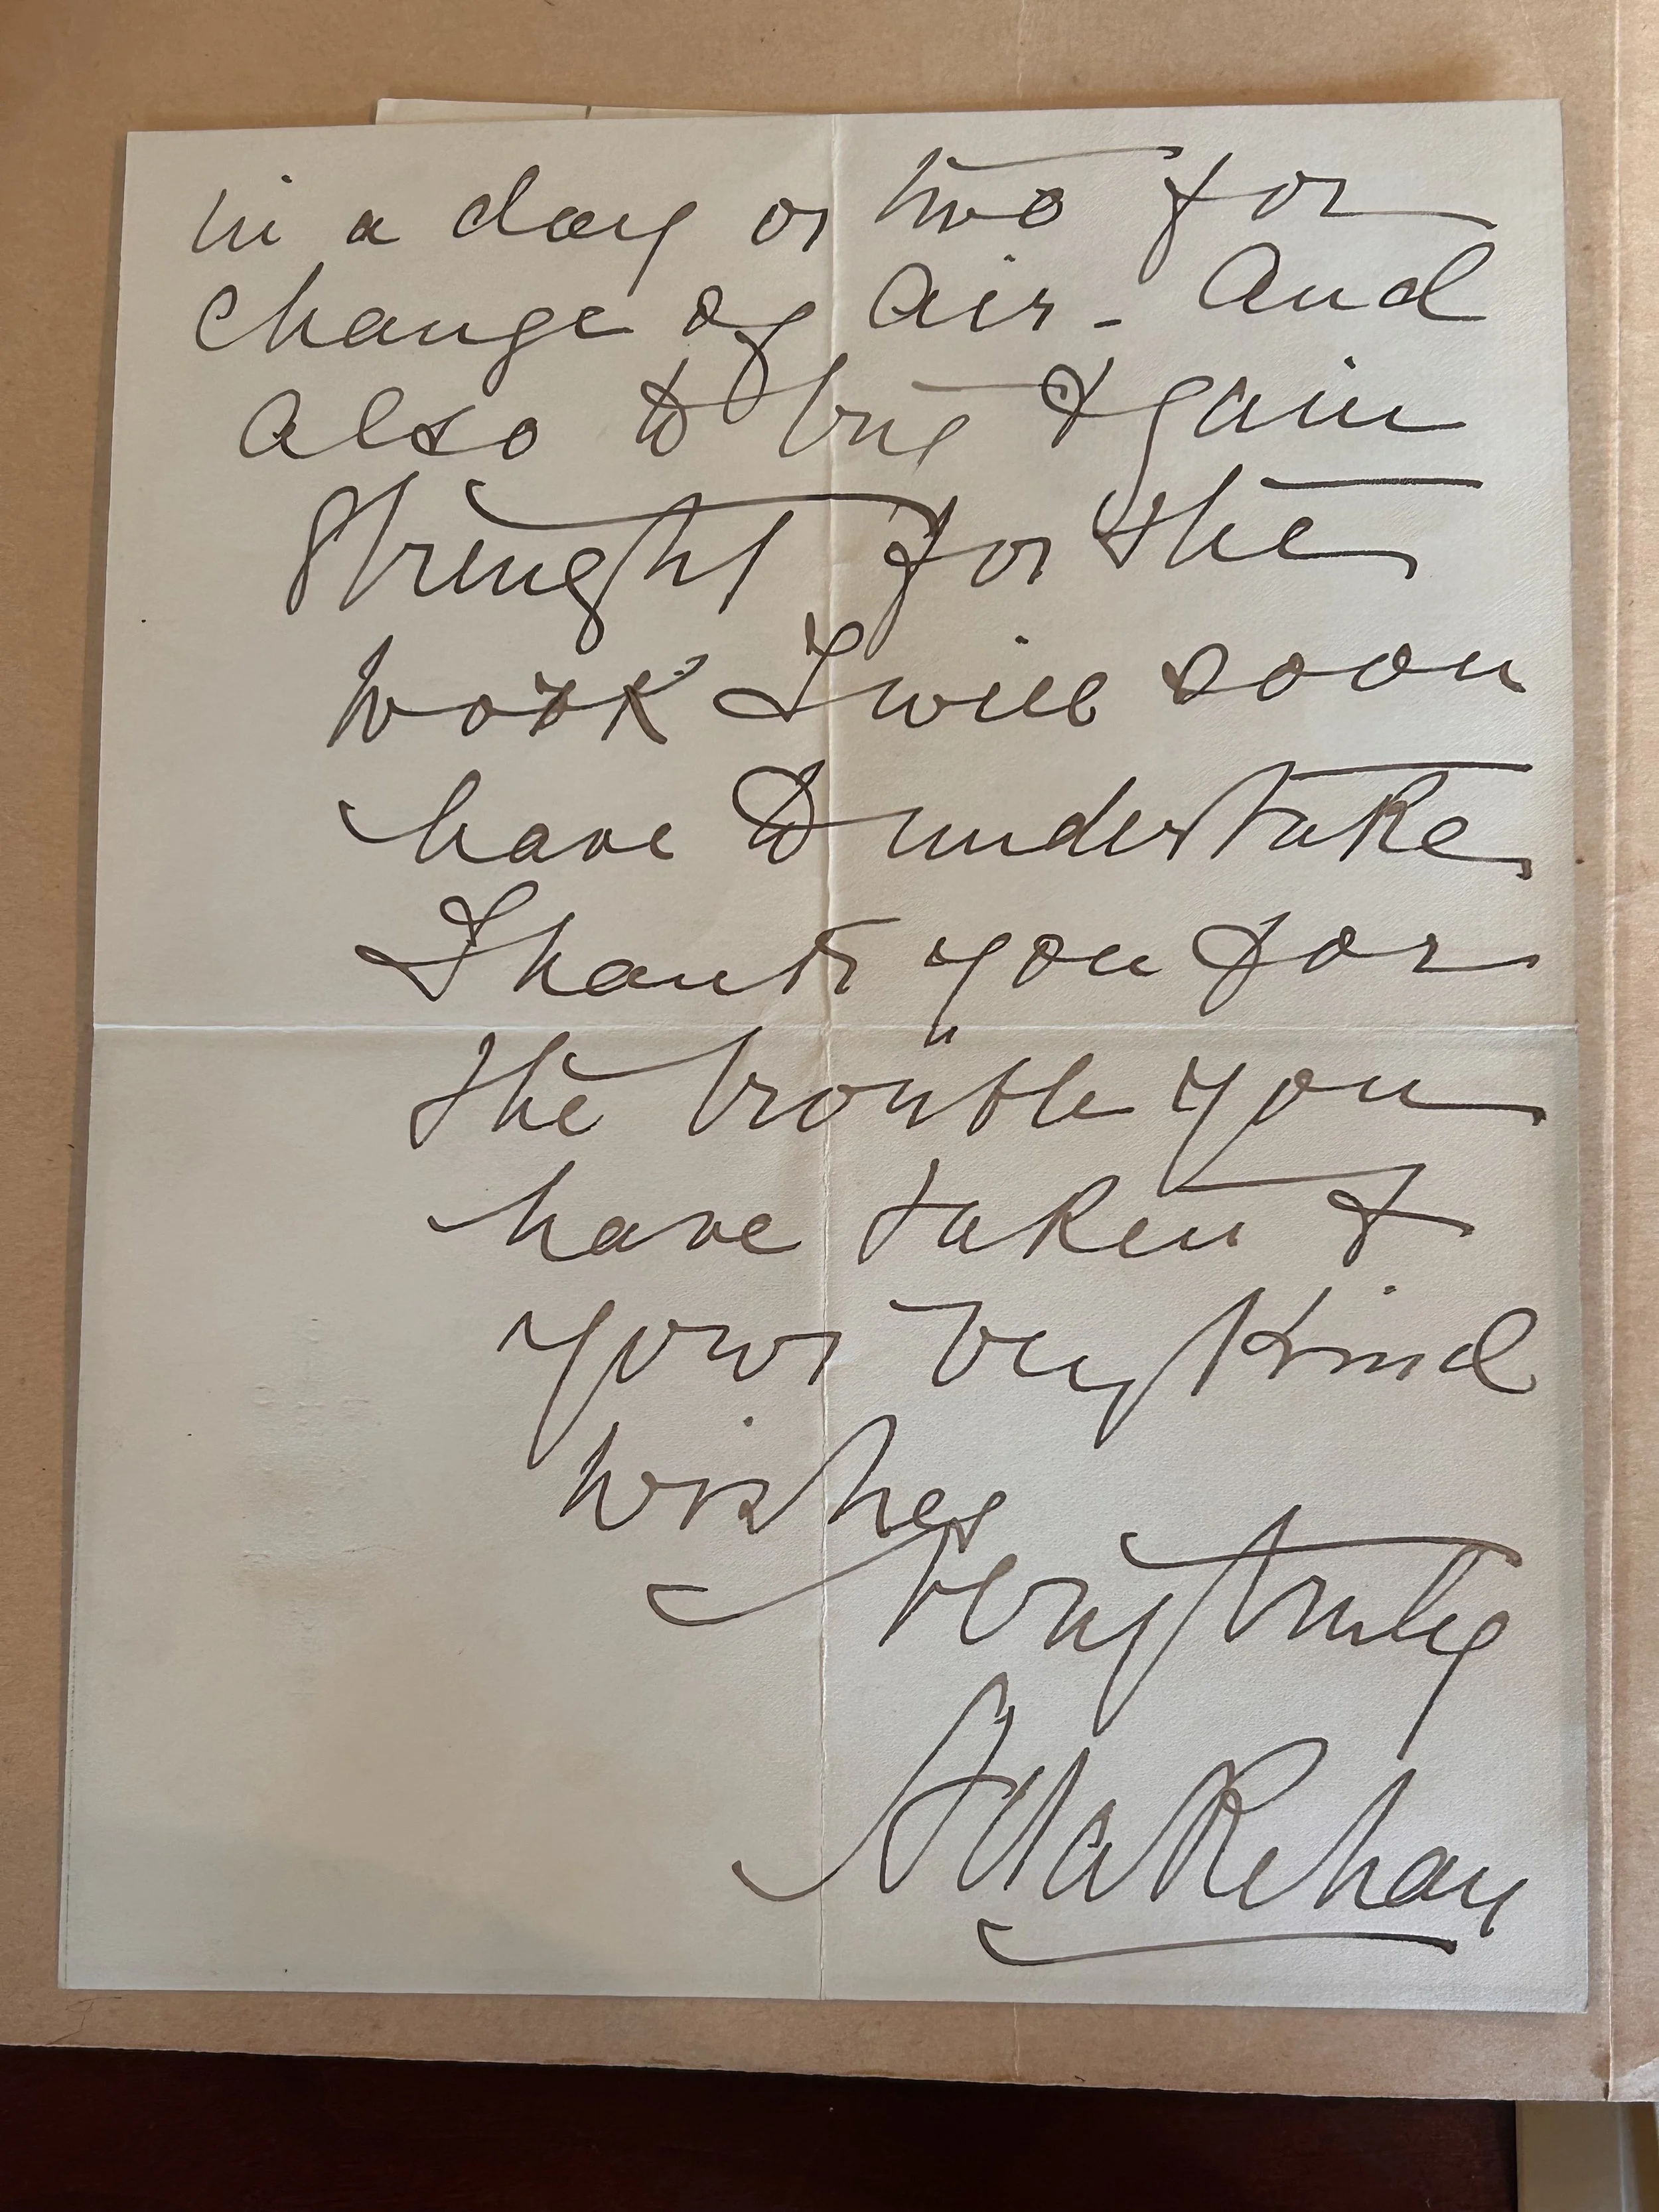 in a day or two for
change of air - and
also to try & gain
strenght for the
work I will soon
have to undertake
Thank you for
the trouble you
have taken &
your very kind
wishes
Very truly
Ada Rehan